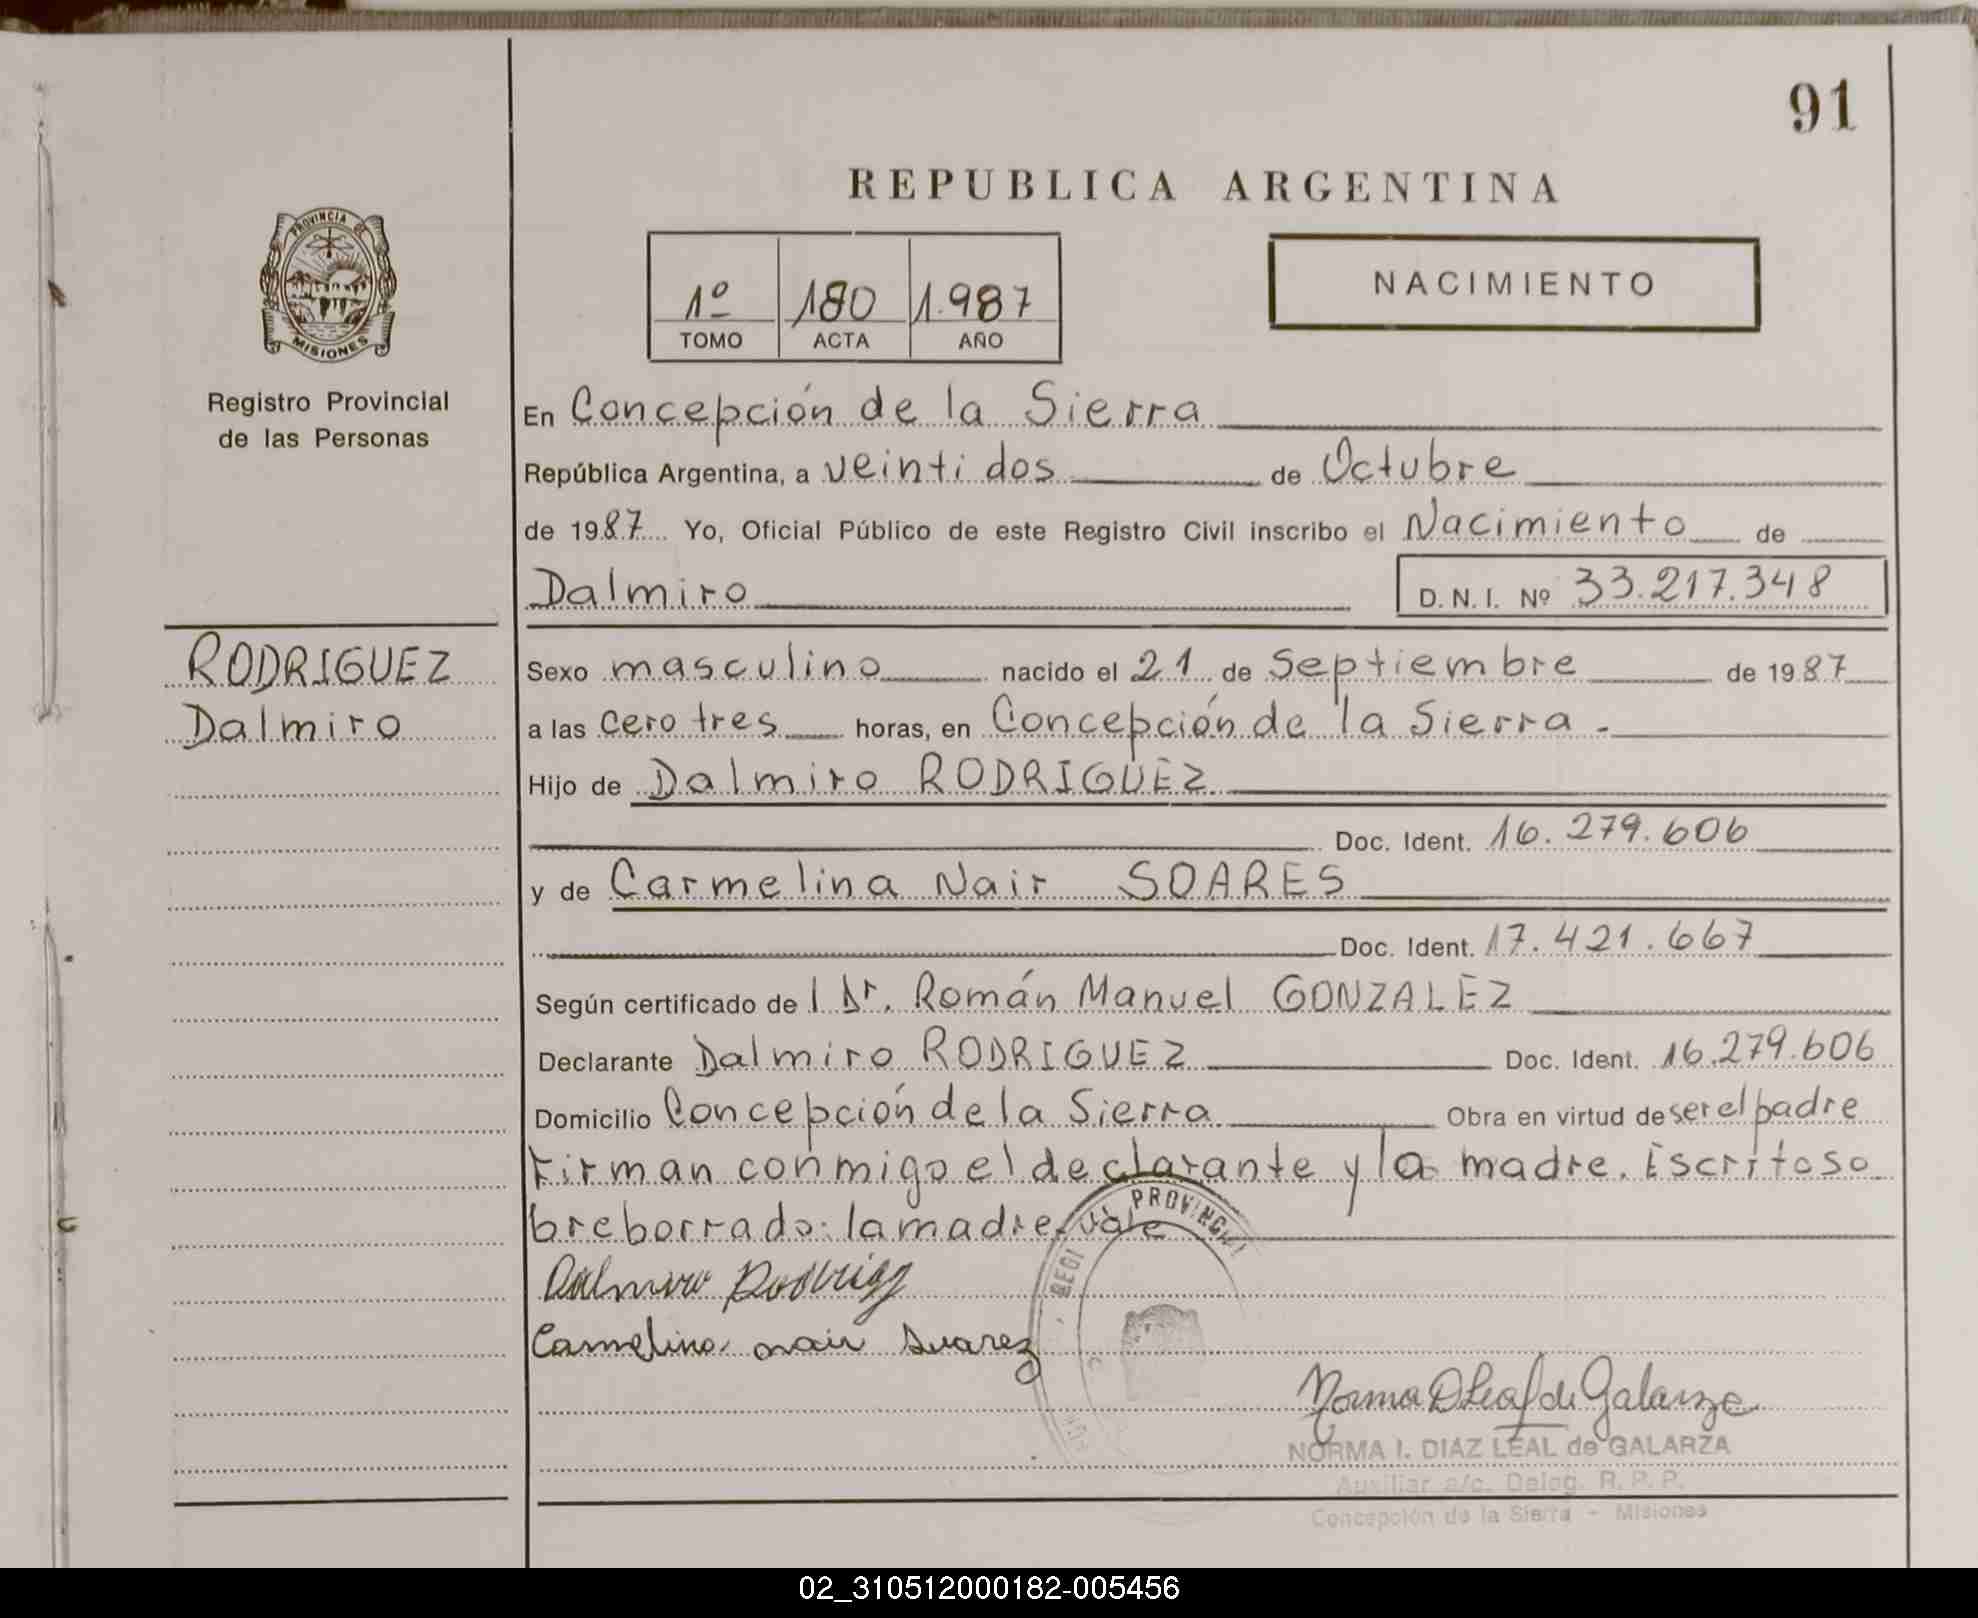 91
REPUBLICA ARGENTINA
PROVINCIA DE
MISIONES
Registro Provincial
de las Personas
1º 180 1.987
TOMO ACTA AÑO
NACIMIENTO
En Concepción de la Sierra
República Argentina, a veinti dos de Octubre
de 1987 Yo, Oficial Público de este Registro Civil inscribo el Nacimiento de
Dalmiro D.N.I. Nº 33.217.348
RODRIGUEZ
Dalmiro
Sexo masculino nacido el 21 de Septiembre de 1987
a las cero tres horas, en Concepción de la Sierra.
Hijo de Dalmiro RODRIGUEZ
Doc. Ident. 16.279.606
y de Carmelina Nair SOARES
Doc. Ident. 17.421.667
Según certificado de l Dr. Román Manuel GONZALEZ
Declarante Dalmiro RODRIGUEZ Doc. Ident. 16.279.606
Domicilio Concepción de la Sierra Obra en virtud de ser el padre
Firman conmigo el declarante y la madre. Escrito so
breborrado: la madre, vale
PROVINCIAL
Dalmiro Rodrigz
Carmelina nair Suarez
Norma D Leal de Galarza
NORMA I. DIAZ LEAL de GALARZA
Auxiliar a/c. Deleg. R. P. P.
Concepción de la Sierra - Misiones
02_310512000182-005456